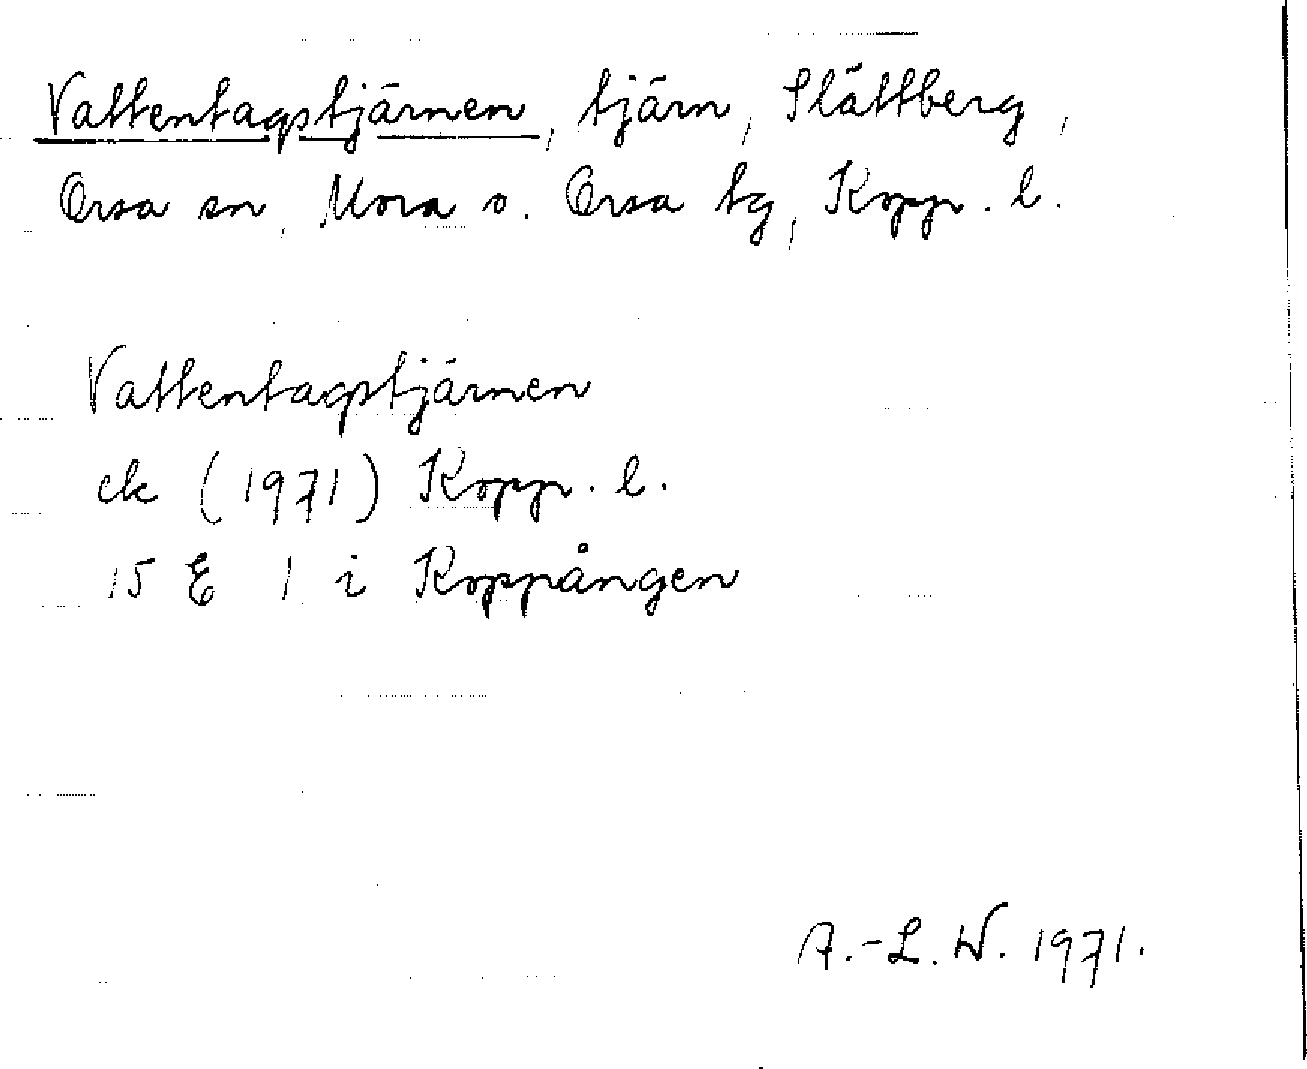 Vattentagstjärnen, tjärn, Slättberg,
Orsa sn, Mora o. Orsa tg, Kopp. l.
Vattentagstjärnen
ek (1971) Kopp. l.
15 E 1 i Koppången
A.-L. W. 1971.